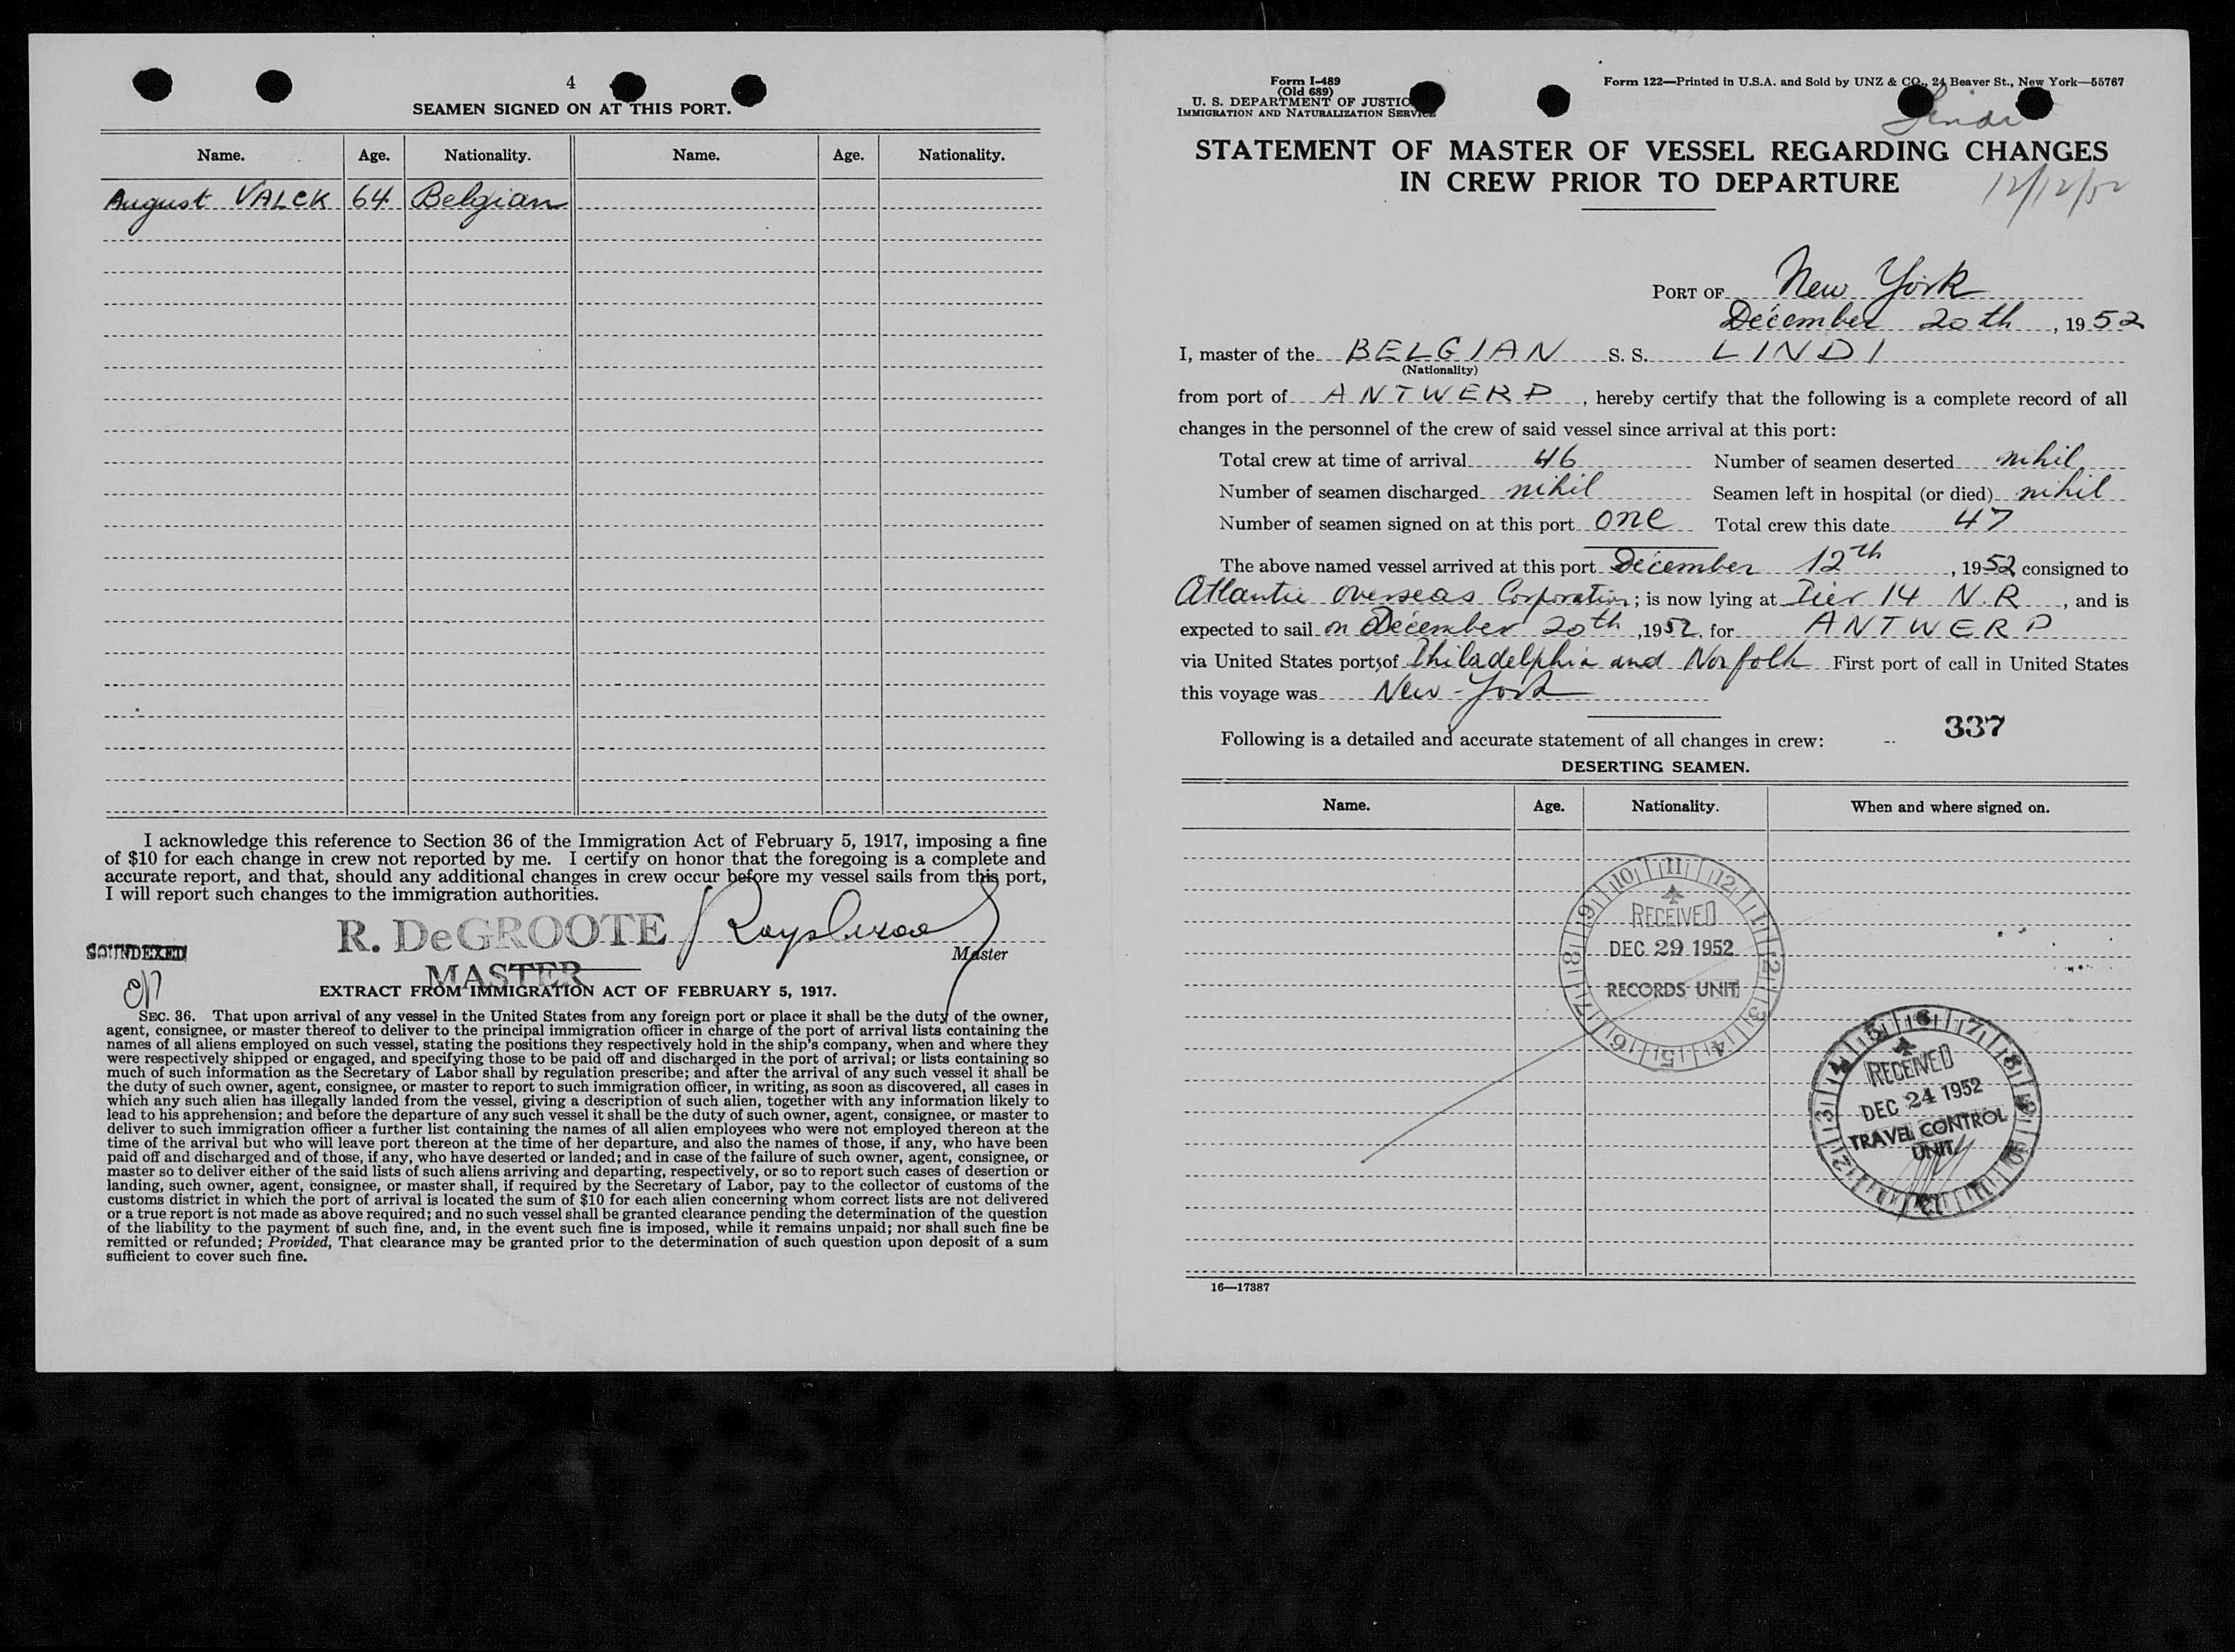 4
SEAMEN SIGNED ON AT THIS PORT.
Name. Age. Nationality. Name. Age. Nationality.
August VALCK 64 Belgian
I acknowledge this reference to Section 36 of the Immigration Act of February 5, 1917, imposing a fine
of $10 for each change in crew not reported by me. I certify on honor that the foregoing is a complete and
accurate report, and that, should any additional changes in crew occur before my vessel sails from this port,
I will report such changes to the immigration authorities.
R. DeGROOTE
SOUNDEXED
Master
MASTER
EXTRACT FROM IMMIGRATION ACT OF FEBRUARY 5, 1917.
SEC. 36. That upon arrival of any vessel in the United States from any foreign port or place it shall be the duty of the owner,
agent, consignee, or master thereof to deliver to the principal immigration officer in charge of the port of arrival lists containing the
names of all aliens employed on such vessel, stating the positions they respectively hold in the ship's company, when and where they
were respectively shipped or engaged, and specifying those to be paid off and discharged in the port of arrival; or lists containing so
much of such information as the Secretary of Labor shall by regulation prescribe; and after the arrival of any such vessel it shall be
the duty of such owner, agent, consignee, or master to report to such immigration officer, in writing, as soon as discovered, all cases in
which any such alien has illegally landed from the vessel, giving a description of such alien, together with any information likely to
lead to his apprehension; and before the departure of any such vessel it shall be the duty of such owner, agent, consignee, or master to
deliver to such immigration officer a further list containing the names of all alien employees who were not employed thereon at the
time of the arrival but who will leave port thereon at the time of her departure, and also the names of those, if any, who have been
paid off and discharged and of those, if any, who have deserted or landed; and in case of the failure of such owner, agent, consignee, or
master so to deliver either of the said lists of such aliens arriving and departing, respectively, or so to report such cases of desertion or
landing, such owner, agent, consignee, or master shall, if required by the Secretary of Labor, pay to the collector of customs of the
customs district in which the port of arrival is located the sum of $10 for each alien concerning whom correct lists are not delivered
or a true report is not made as above required; and no such vessel shall be granted clearance pending the determination of the question
of the liability to the payment of such fine, and, in the event such fine is imposed, while it remains unpaid; nor shall such fine be
remitted or refunded; Provided, That clearance may be granted prior to the determination of such question upon deposit of a sum
sufficient to cover such fine.
Form I-489
(Old 689)
U. S. DEPARTMENT OF JUSTICE
IMMIGRATION AND NATURALIZATION SERVICE
Form 122—Printed in U.S.A. and Sold by UNZ & CO., 24 Beaver St., New York—55767
Lindi
STATEMENT OF MASTER OF VESSEL REGARDING CHANGES
IN CREW PRIOR TO DEPARTURE
12/12/52
PORT OF New York
December 20th, 1952
I, master of the BELGIAN S. S. LINDI
(Nationality)
from port of ANTWERP, hereby certify that the following is a complete record of all
changes in the personnel of the crew of said vessel since arrival at this port:
Total crew at time of arrival 46 Number of seamen deserted nihil
Number of seamen discharged nihil Seamen left in hospital (or died) nihil
Number of seamen signed on at this port one Total crew this date 47
The above named vessel arrived at this port December 12th, 1952 consigned to
Atlantic Overseas Corporation; is now lying at Pier 14 N.R, and is
expected to sail on December 20th, 1952, for ANTWERP
via United States ports of Philadelphia and Norfolk First port of call in United States
this voyage was New-York
337
Following is a detailed and accurate statement of all changes in crew:
DESERTING SEAMEN.
Name. Age. Nationality. When and where signed on.
RECEIVED
DEC 29 1952
RECORDS UNIT
RECEIVED
DEC 24 1952
TRAVEL CONTROL
UNIT
16—17387